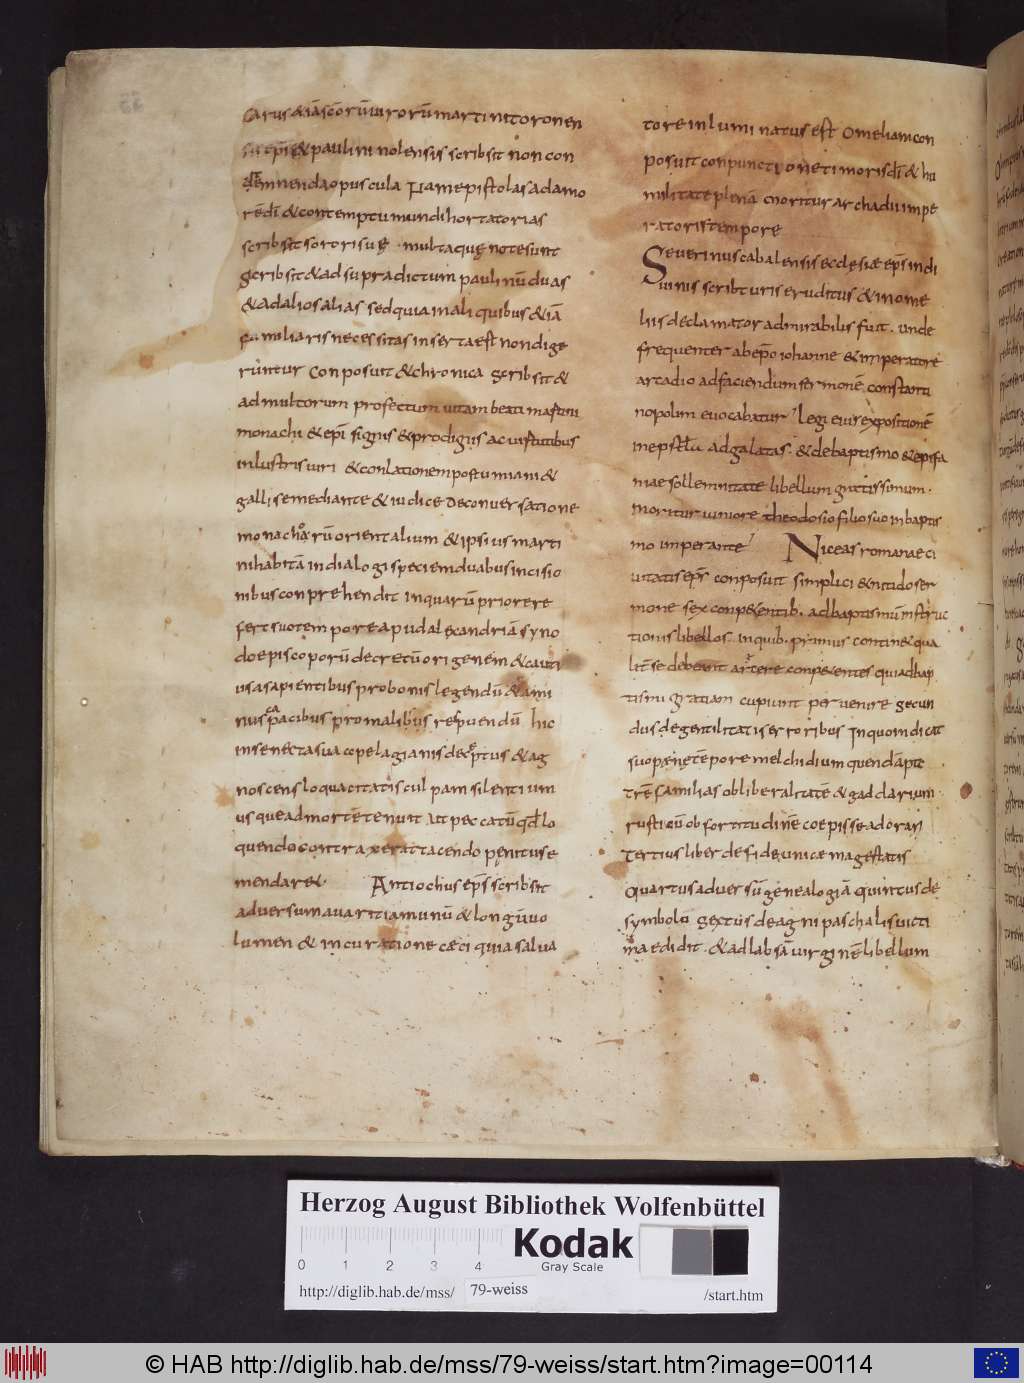 carus & iā scōrū virorū martini toronen
sis epī & paulini nolensis scribsit non con
demnenda opuscula Nam epistolas ad amo
rē dī & contemptu mundi hortatorias
scribsit sorori suę · multaquę notę sunt
scribsit & ad supradictum paulinū duas
& ad alios alias sed quia in aliquibus & iā
familiaris necessitas inserta est non dige
runtur Conposuit & chronica scribsit &
ad multorum profectum vitam beati martini
monachi & epī signis & prodigiis ac virtutibus
inlustris viri & conlationem postumiani &
galli se mediante & iudice de conversatione
monachorū orientalium & ipsius marti
ni habitā in dialogi speciem duabus incisio
nibus conprehendit in quarū priore re
fert suo tempore apud alexandriā syno
do episcoporū decretū origenem & cauti
us a sapientibus pro bonis legendū & a mi
nus capacibus pro malis respuendū hic
in senecta sua a pelagianis deceptus & ag
noscens loquacitatis culpam silentium
usque ad mortē tenuit ut peccatū qd̄ lo
quendo contraxerat tacendo penitus e
mendaret Antiochus epīs scribsit
adversum avaritiam unū & longū vo
lumen & in curatione cæci qui a salva
tore inluminatus est Omeliam con
posuit conpunctione timoris dī & hu
militate plenā moritur archadii impe
ratoris tempore
Severinus cabalensis ecclesiæ epīs in di
vinis scribturis eruditus & in ome
liis declamator admirabilis fuit . unde
frequenter ab epō iohanne & imperatore
arcadio ad faciendum sermonē constanti
nopolim evocabatur Legi eius expositionē
in epistlā ad galatas . & de baptismo & epifa
niae sollemnitate libellum gratissimum .
moritur iuniore theodosio filio suo in baptis
mo imperante Niceas romanae ci
vitatis epīs conposuit simplici & nitido ser
mone sex conpetentib . ad baptismū instruc
tionis libellos . in quib . primus contin& qua
lit̄ se debeant agere conpetentes qui ad bap
tismi gratiam cupiunt pervenire secun
dus de gentilitatis erroribus In quo indicat
suo pęnę tēpore melchidium quendā patē
trē familias ob liberalitatē & gaddarium
rusticū ob fortitudinē coepisse adorari
Tertius liber de fide unicæ magestatis
Quartus adversū genealogiā quintus de
symbolo sextus de agni paschalis victi
ma edidit . & ad labsā virginē libellum
Herzog August Bibliothek Wolfenbüttel
0 1 2 3 4
Kodak
Gray Scale
http://diglib.hab.de/mss/ 79-weiss /start.htm
© HAB http://diglib.hab.de/mss/79-weiss/start.htm?image=00114